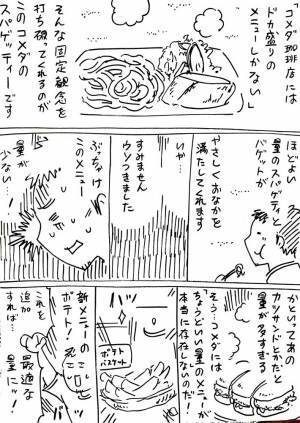 「コメダ珈琲店には
ドカ盛りの
メニューしかない」
そんな固定観念を
打ち破ってくれるのが
このコメダの
スパゲッティーです
ほどよい
量のスパゲティと
バゲットが
やさしくおなかを
満たしてくれます
いや…
すみません
ウソつきました
ぶっちゃけ
このメニュー
量が
少ない!
かといってあの
カツサンドとかだと
量が多すぎる
そう…コメダには
ちょうどいい量のメニューが
本当に存在しないのだ!
ポテト
バスケット
新メニューの
ポテト!
これを
追加
すれば…
最適な
量にッ!